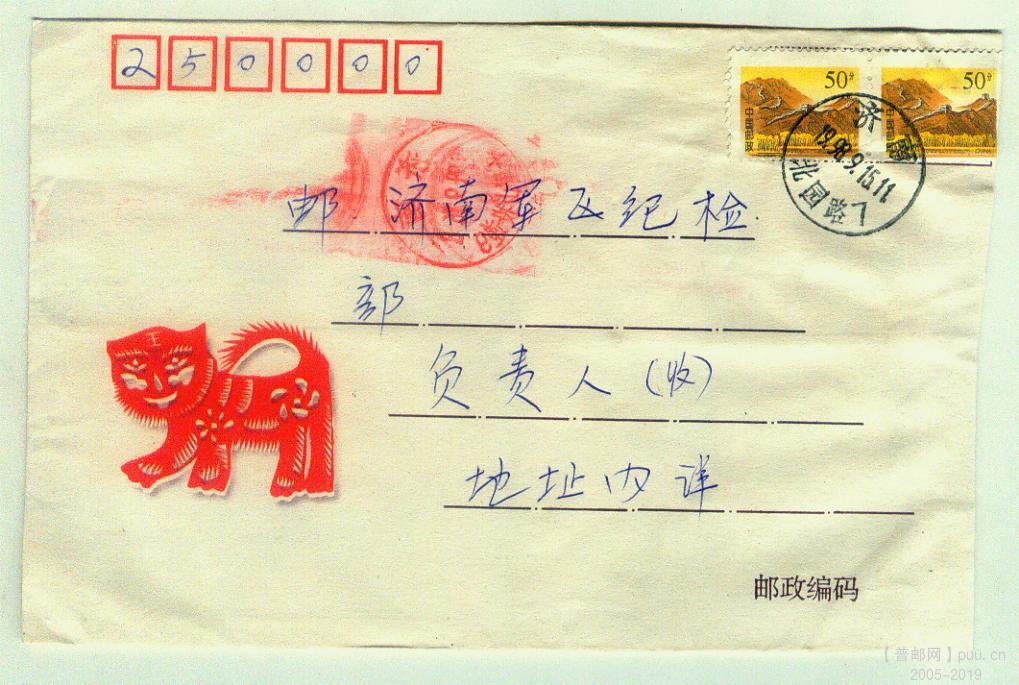 250000
50分
50分
中国邮政
济南
1998.9.15.11
北园路 7
邮. 济南军区纪检
部
负责人(收)
王
地址内详
邮政编码
【普邮网】puu.cn
2005-2019